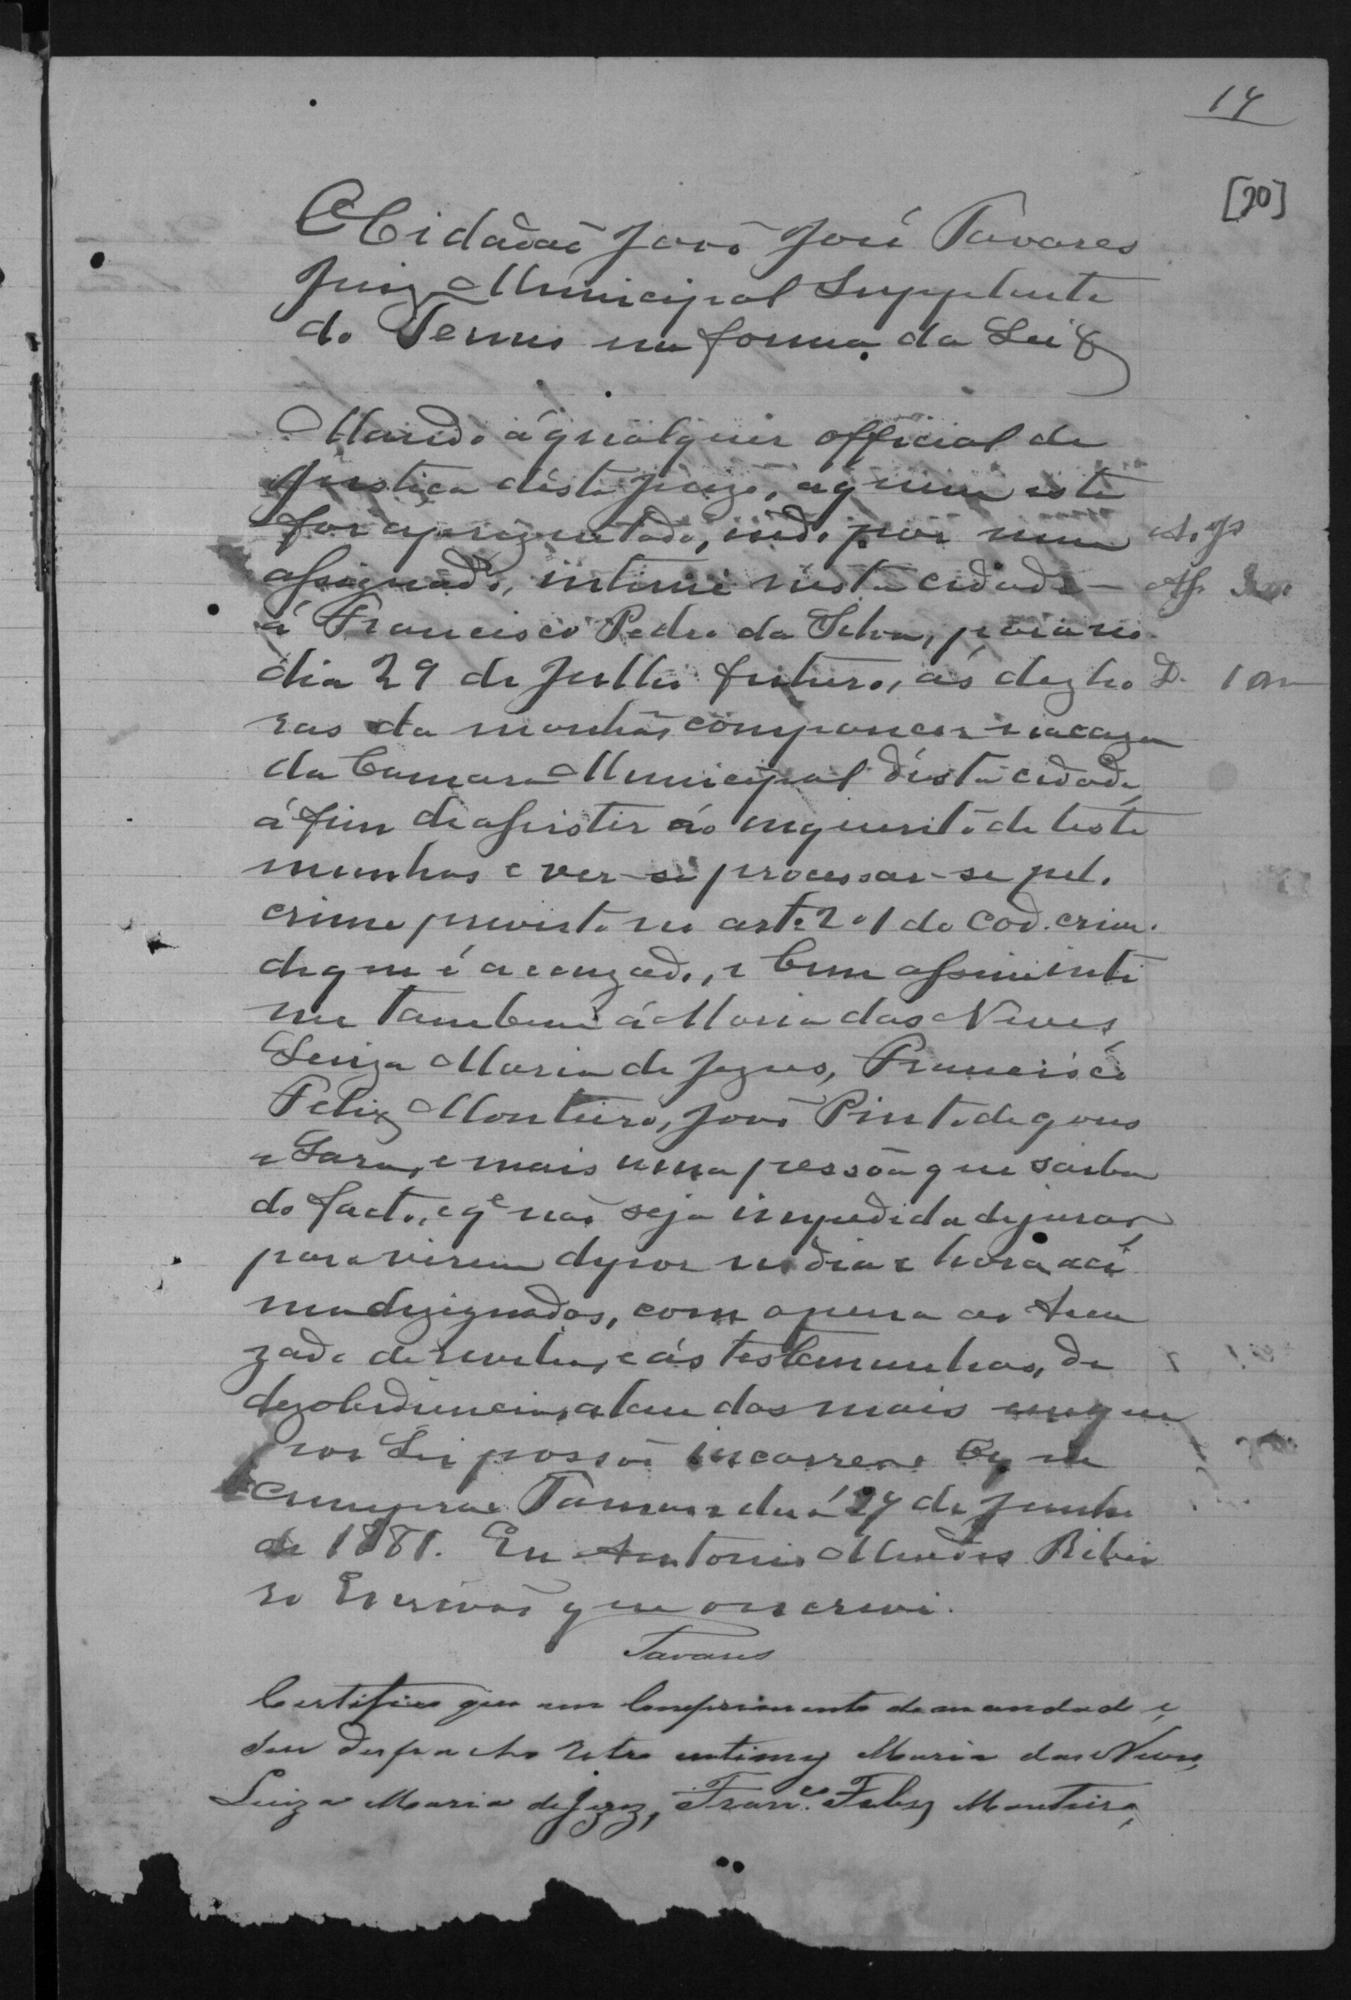 14
[20]
O Cidadão João José Tavares
Juiz Municipal Supplente
do Termo na forma da Lei &
Mando á qualquer official de
Justiça désta Juizo, á quem este
for aprezentado, indo por mim
assignado, intime nesta cidade
á Francisco Pedro da Silva, para no
dia 29 de Julho futuro, as dez ho
ras da manhã comparecer na caza
da Camara Municipal désta cidade,
á fim de assistir ao inquerito de teste
munhas e ver-se processar-se pelo
crime previsto no art. 201 do Cod. crim.
de que é accuzado, e bem assim inti
me tambem á Maria das Neves
Luiza Maria de Jezus, Francisco
Feliz Monteiro, João Pinto de
e mais uma pessôa que saiba
do facto, e qe não seja impedida de jurar
para virem depor no dia e hora aci
ma dezignados, com a pena ao Accu
zado de revelia, e ás testemunhas, de
dezobediencia, alem das mais em que
por Lei possão incorrer. O que
cumpra. Tamandaré 27 de Junho
de 1881. Eu Antonio Mendes Ribei
ro Escrivão que o escrevi.
Tavares
Certifico que em Comprimento do mandado e
seu despacho retro intimey Maria das Neves,
Luiza Maria de Jezuz, Franco. Feliz Monteiro,
D.